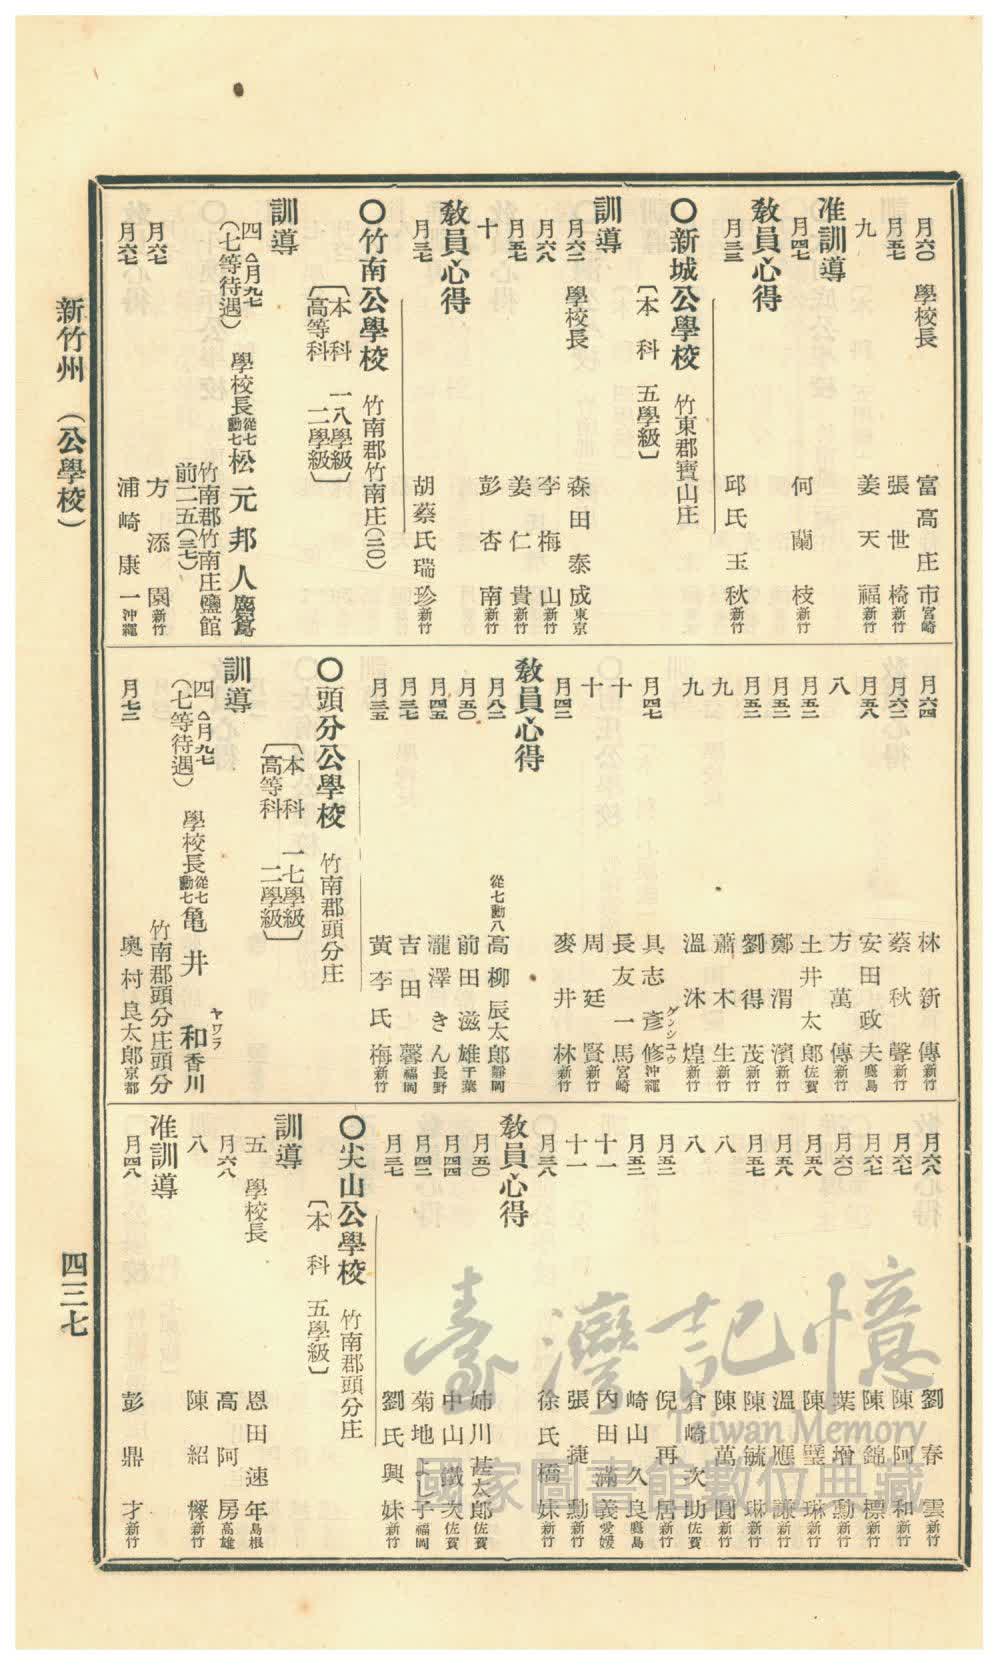 月六〇 學校長 富高庄市 宮崎
月五七 張世椅 新竹
九 姜天福 新竹
准訓導
月四七 何蘭枝 新竹
教員心得
月三三 邱氏玉秋 新竹
〇新城公學校 竹東郡寶山庄
〔本科 五學級〕
訓導
月六二 學校長 森田泰成 東京
月六六 李梅山 新竹
月五七 姜仁貴 新竹
十 彭杏南 新竹
教員心得
月三七 胡蔡氏瑞珍 新竹
〇竹南公學校 竹南郡竹南庄(二〇)
〔本科 一八學級〕
〔高等科 二學級〕
訓導
四 月九七 學校長 從七勳七 松元邦人 鹿兒島
(七等待遇) 竹南郡竹南庄鹽館
前二五(三七)
月六七 方添園 新竹
月六七 浦崎康一 沖繩
月六四 林新傳 新竹
月六二 蔡秋聲 新竹
月五八 安田政夫 鹿兒島
八 方萬傳 新竹
月五二 土井太郎 佐賀
月五二 鄭渭濱 新竹
月五二 劉得茂 新竹
九 蕭木生 新竹
九 溫沐煌 新竹
月四七 具志彥修 ゲンシユウ 沖繩
十 長友一馬 宮崎
十 周廷賢 新竹
月四二 麥井林 新竹
教員心得
月八二 從七勳八 高柳辰太郎 靜岡
月五〇 前田滋雄 千葉
月四五 瀧澤きん 長野
月三七 吉田馨 福岡
月三五 黃李氏梅 新竹
〇頭分公學校 竹南郡頭分庄
〔本科 一七學級〕
〔高等科 二學級〕
訓導
四 月九七 學校長 從七勳七 亀井和 ヤワラ 香川
(七等待遇) 竹南郡頭分庄頭分
月七二 奧村良太郎 京都
月六八 劉春雲 新竹
月六七 陳阿和 新竹
月六七 陳錦標 新竹
月六〇 葉增勳 新竹
月五八 陳璧琳 新竹
月五八 溫應謙 新竹
月五七 陳毓琳 新竹
八 陳萬圓 新竹
八 倉崎次助 佐賀
月五二 倪再居 新竹
月五二 崎山久良 鹿兒島
十一 內田滿義 愛媛
十一 張捷勳 新竹
月三八 徐氏橋妹 新竹
教員心得
月五〇 姉川甚太郎 佐賀
月四四 中山鐵夫 佐賀
月四二 菊地よし子 福岡
月三七 劉氏興妹 新竹
〇尖山公學校 竹南郡頭分庄
〔本科 五學級〕
訓導
五 學校長 恩田速年 島根
月六八 高阿房 高雄
八 陳紹檪 新竹
准訓導
月四八 彭鼎才 新竹
新竹州 (公學校) 四三七
臺灣記憶
Taiwan Memory
國家圖書館數位典藏